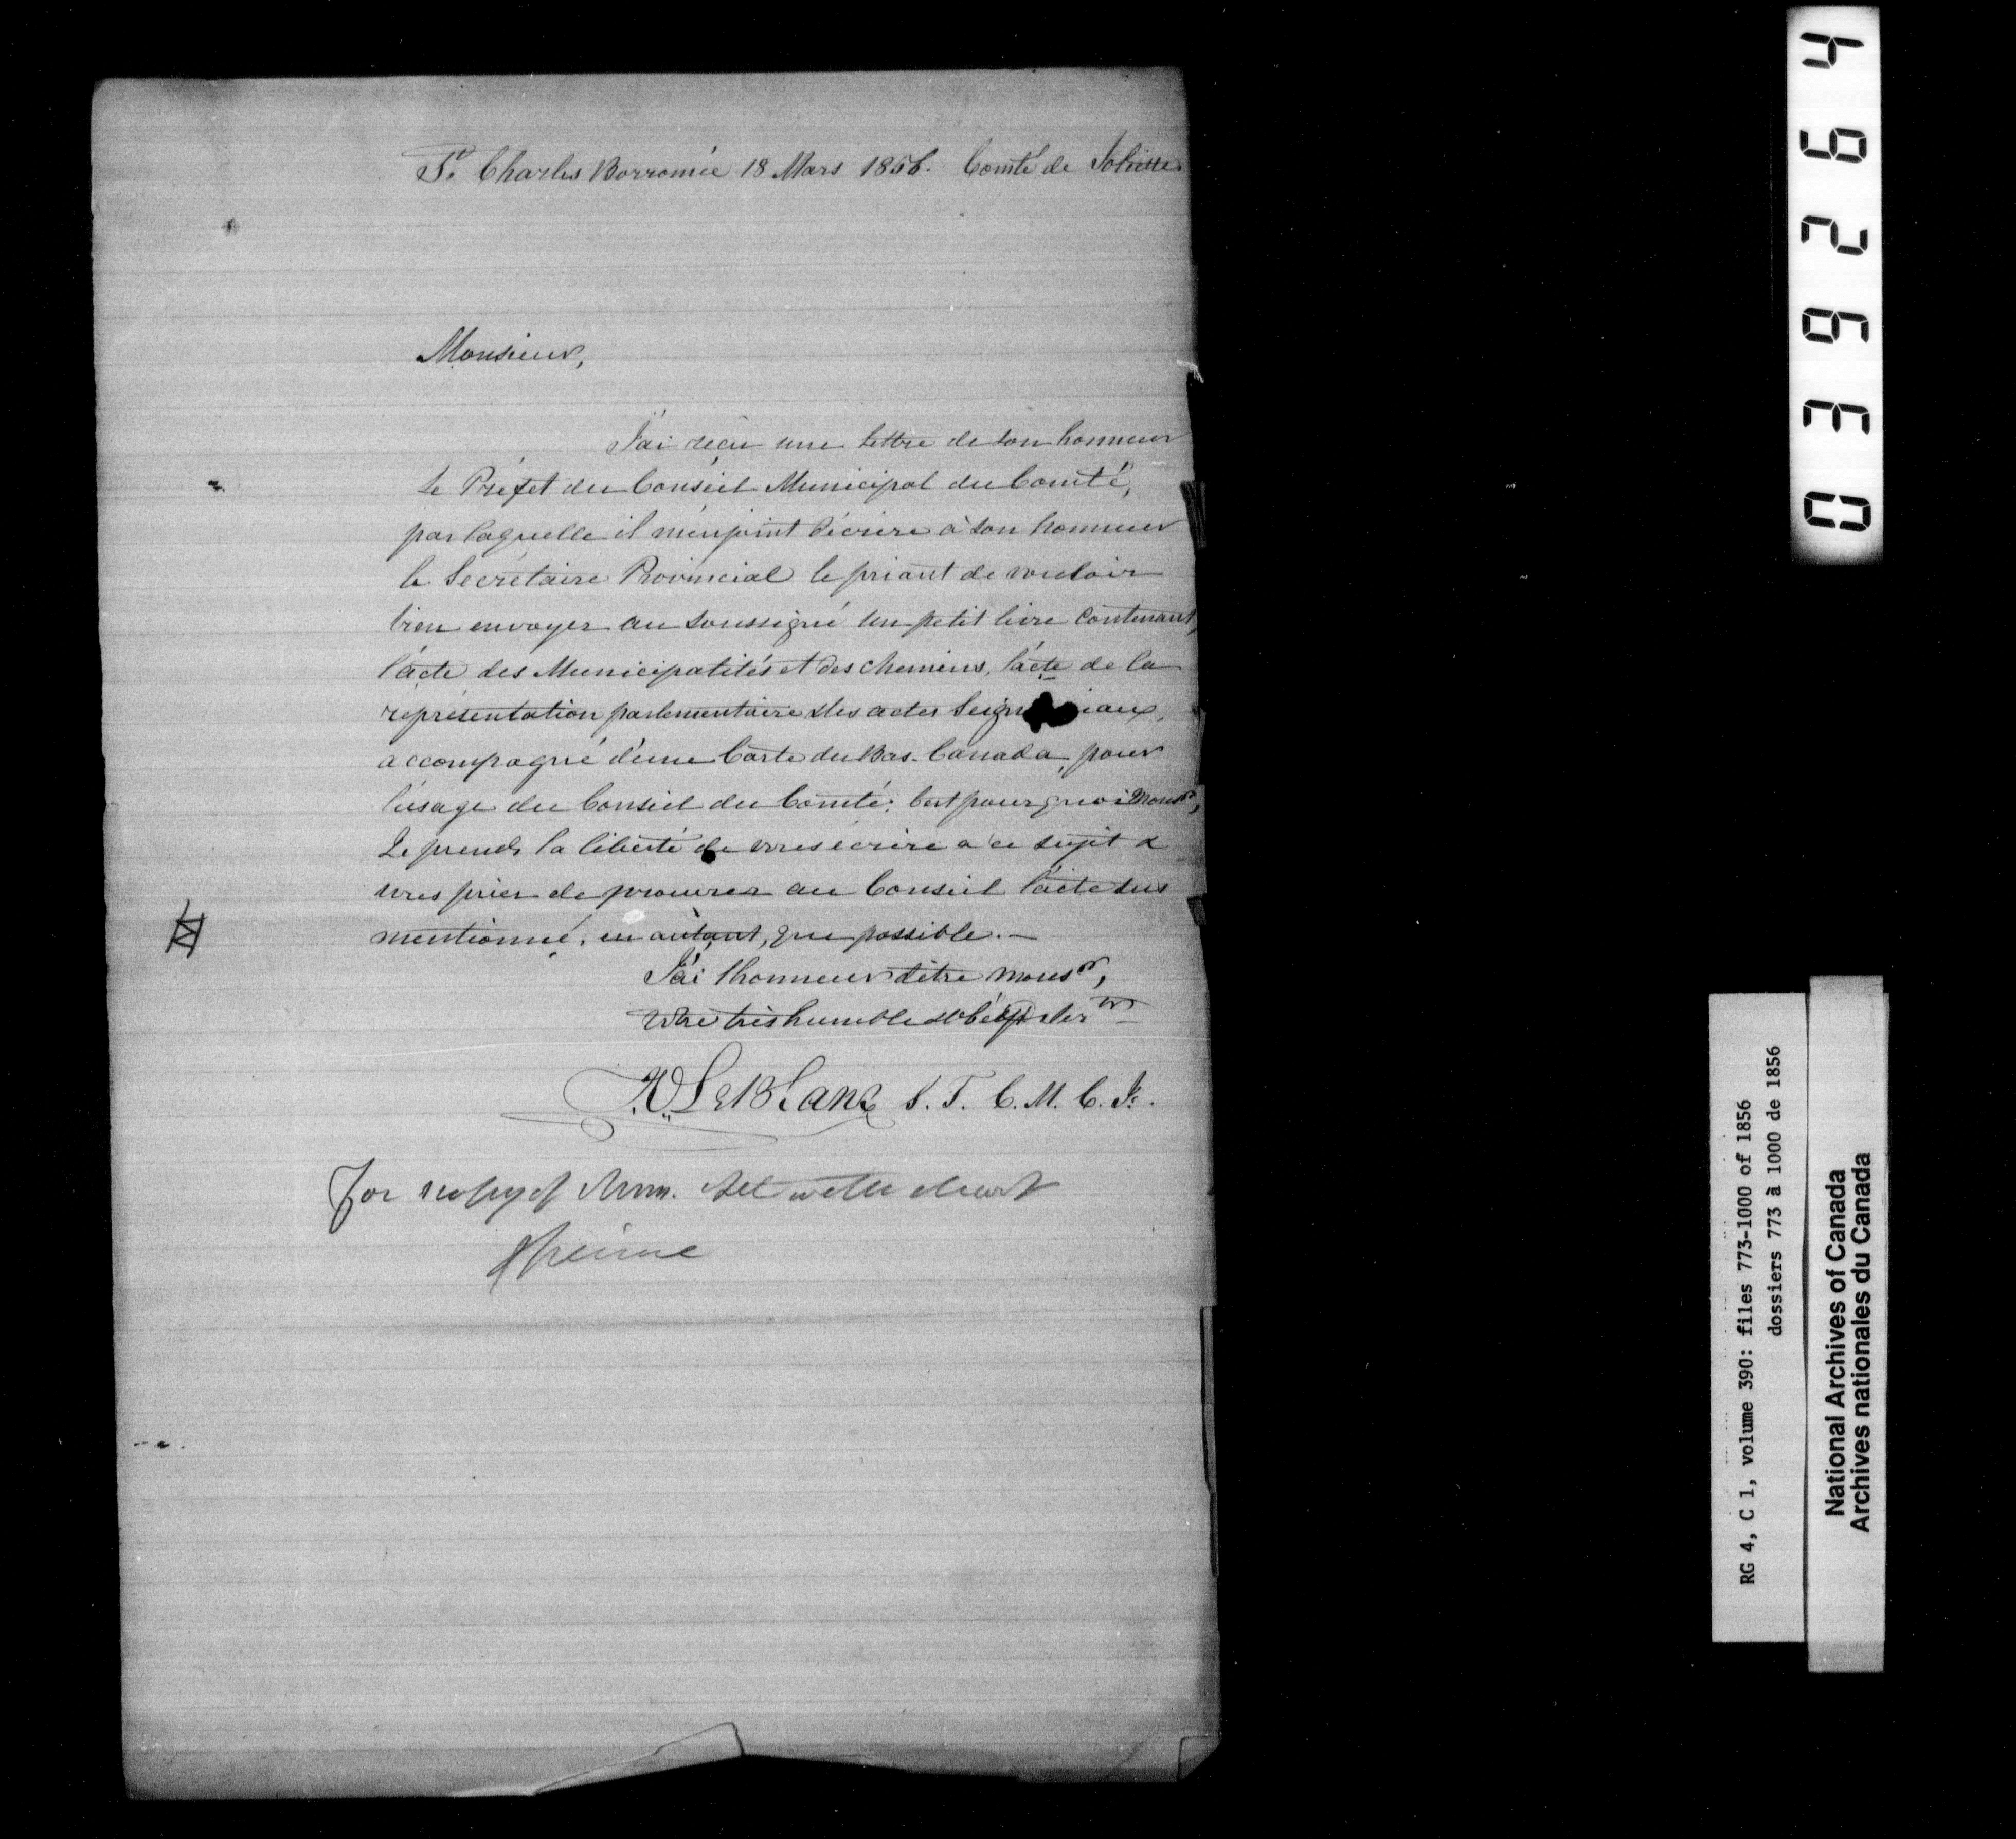 St. Charles Borromée 18 Mars 1856. Comté de Joliette
Monsieur,
J'ai reçu une lettre de son honneur
le Préfet du Conseil Municipal du Comté,
par laquelle il m'enjoint d'écrire à son honneur
le Secrétaire Provincial le priant de vouloir
bien envoyer au soussigné un petit livre contenant,
l'acte des Municipalités et des chemins, l'acte de la
représentation parlementaire & les actes Seign iaux,
accompagné d'une Carte du Bas-Canada, pour
l'usage du Conseil du Comté; C'est pourquoi Monsr,
Je prends la liberté de vous écrire à ce sujet &
vous prier de procurer au Conseil l'acte sus
mentionné, en autant, que possible.—
J'ai l'honneur d'être Monsr,
Votre très humble & obéist Sertr
LeBlanc S. T. C. M. C. J.
For copy of Mun. Act with chart
XI
039264
RG 4, C 1, volume 390: files 773-1000 of 1856
dossiers 773 à 1000 de 1856
National Archives of Canada
Archives nationales du Canada